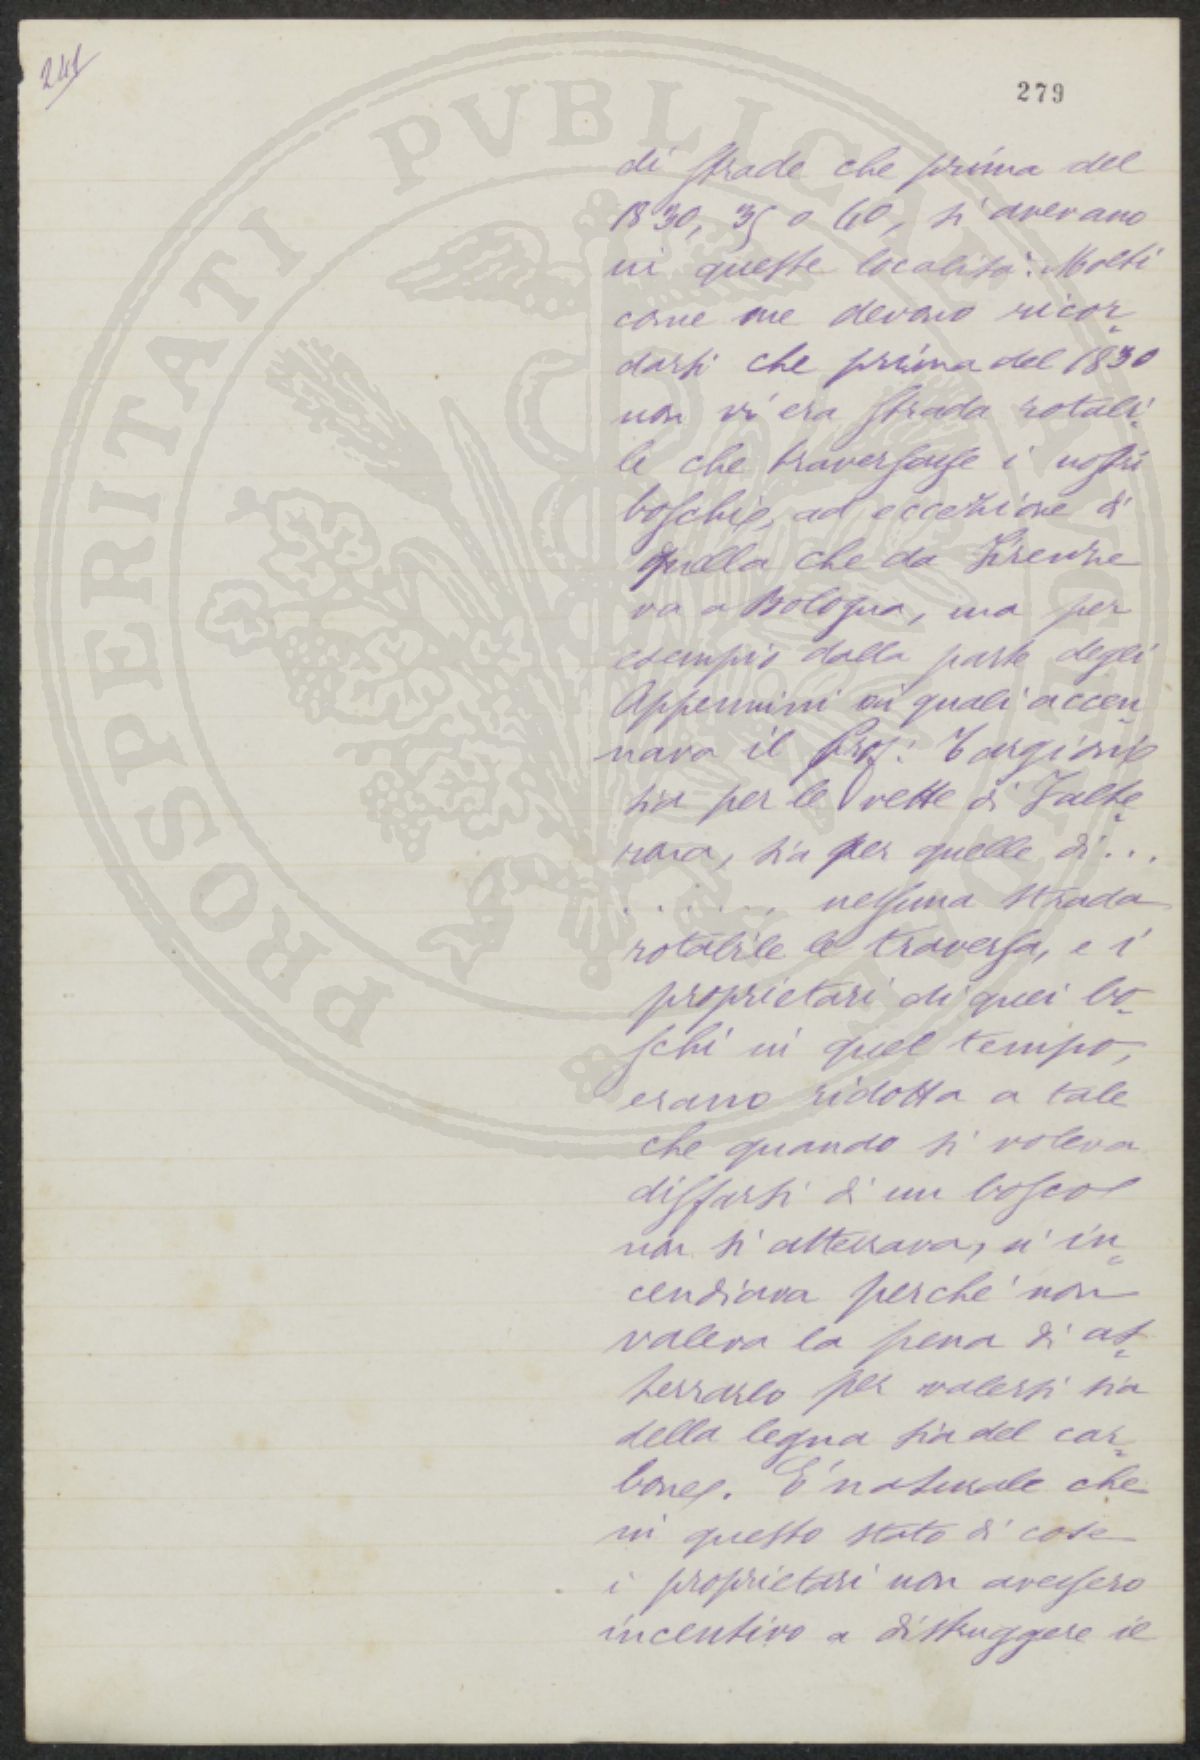 241
279
di strade che prima del
1830, 35 o 40, si avevano
in queste località. Molti
come me devono ricor
darsi che prima del 1830
non vi era strada rotabi
le che traversasse i nostri
boschi, ad eccezione di
quella che da Firenze
va a Bologna, ma per
esempio dalla parte degli
Appennini ai quali accen
nava il Prof. Targioni
sia per le vette di Falte
rona, sia per quelle di...
....... nessuna strada
rotabile le traversa, e i
proprietari di quei bo
schi in quel tempo,
erano ridotta a tale
che quando si voleva
disfarsi di un bosco
non si atterrava, si in
cendiava perchè non
valeva la pena di at
terrarlo per valersi sia
della legna sia del car
bone. E' naturale che
in questo stato di cose
i proprietari non avessero
incentivo a distruggere il
PROSPERITATI PVBLICAE